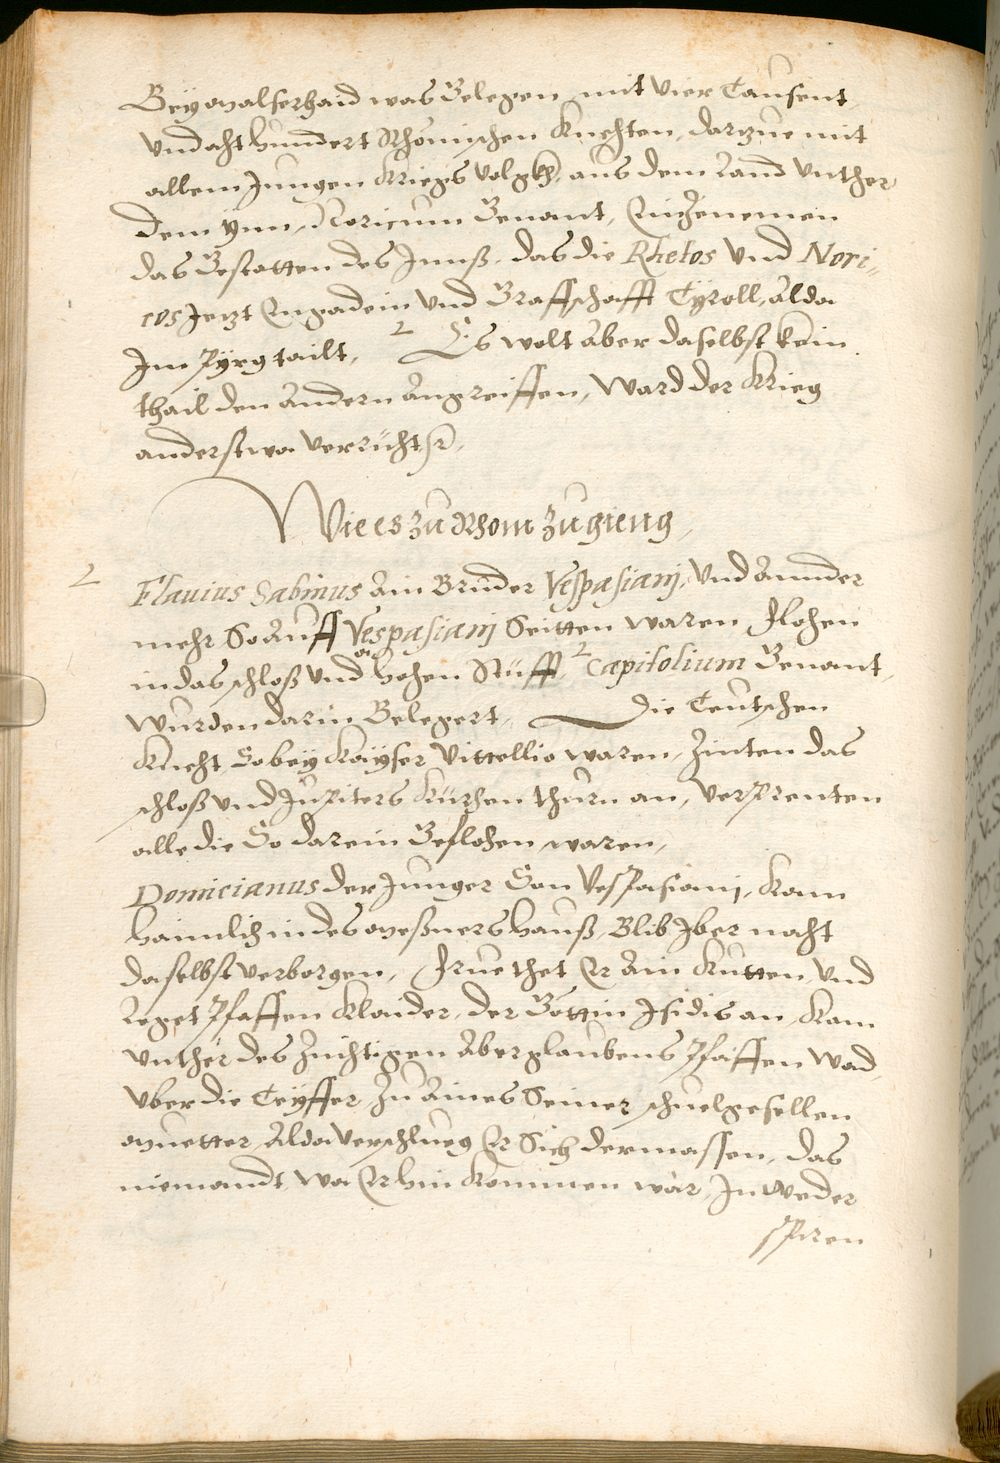 Bey Malserhaid was Gelegen mit vier Tausent
vnd acht hundert Rhömischen Knechten, darzue mit
allem Jungen Kriegs volgkh, aus dem Land vnther
dem ynn, Noricum Genant, Einzenemen
das Gestatten des Innß, das die Rhetos vnd Nori„
cos Jetzt Engadein vnd Graffschafft Tyroll, alda
Im Pÿrg tailt, 2 Es wolt Aber daselbst kein
thail den Andern Angreiffen, Ward der Krieg
anderstwa verrichtt,
Wie es zu Rhom zu gieng,
2 Flauius Sabinus Ain Bruder Vespasianj, Vnd Annder
mehr So Auff Vespasianj Seitten waren Flohen
in das schloß vnd hohen Stüfft, 2 Capitolium Genant,
Wurden darin Belegert, Die Teutschen
Knecht So bey Kayser Vittellio waren, Zinten das
schloß vnd Jupiters Kürchen thurn an, verprenten
alle die So darein Geflohen waren,
Domicianus der Junger Son Vespasianj, Kam
haimlich in des Meßners hauß, Blib Iber nacht
daselbst verborgen, Frue thet Er Ain Kutten, vnd
Leget Pfaffen Klaider, der Göttin Isidis an, Kam
vnther des Zuchtigen Aberglaubens Pfaffen Wad,
vber die Teyffer, Zu Aines Seiner schuelgesellen
Muetter, Alda verschlueg Er Sich dermassen, das
niemandt, wa Er hin Kommen wär, In Weder
spiren